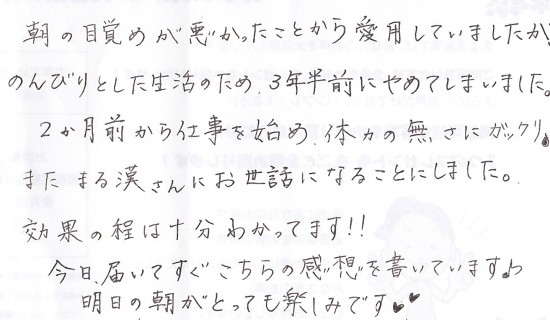 朝の目覚めが悪かったことから愛用していましたが、
のんびりとした生活のため、3年半前にやめてしまいました。
2か月前から仕事を始め、体力の無さにガックリ。
またまる漢さんにお世話になることにしました。
効果の程は十分わかってます!!
今日、届いてすぐこちらの感想を書いています♪
明日の朝がとっても楽しみです♥♥